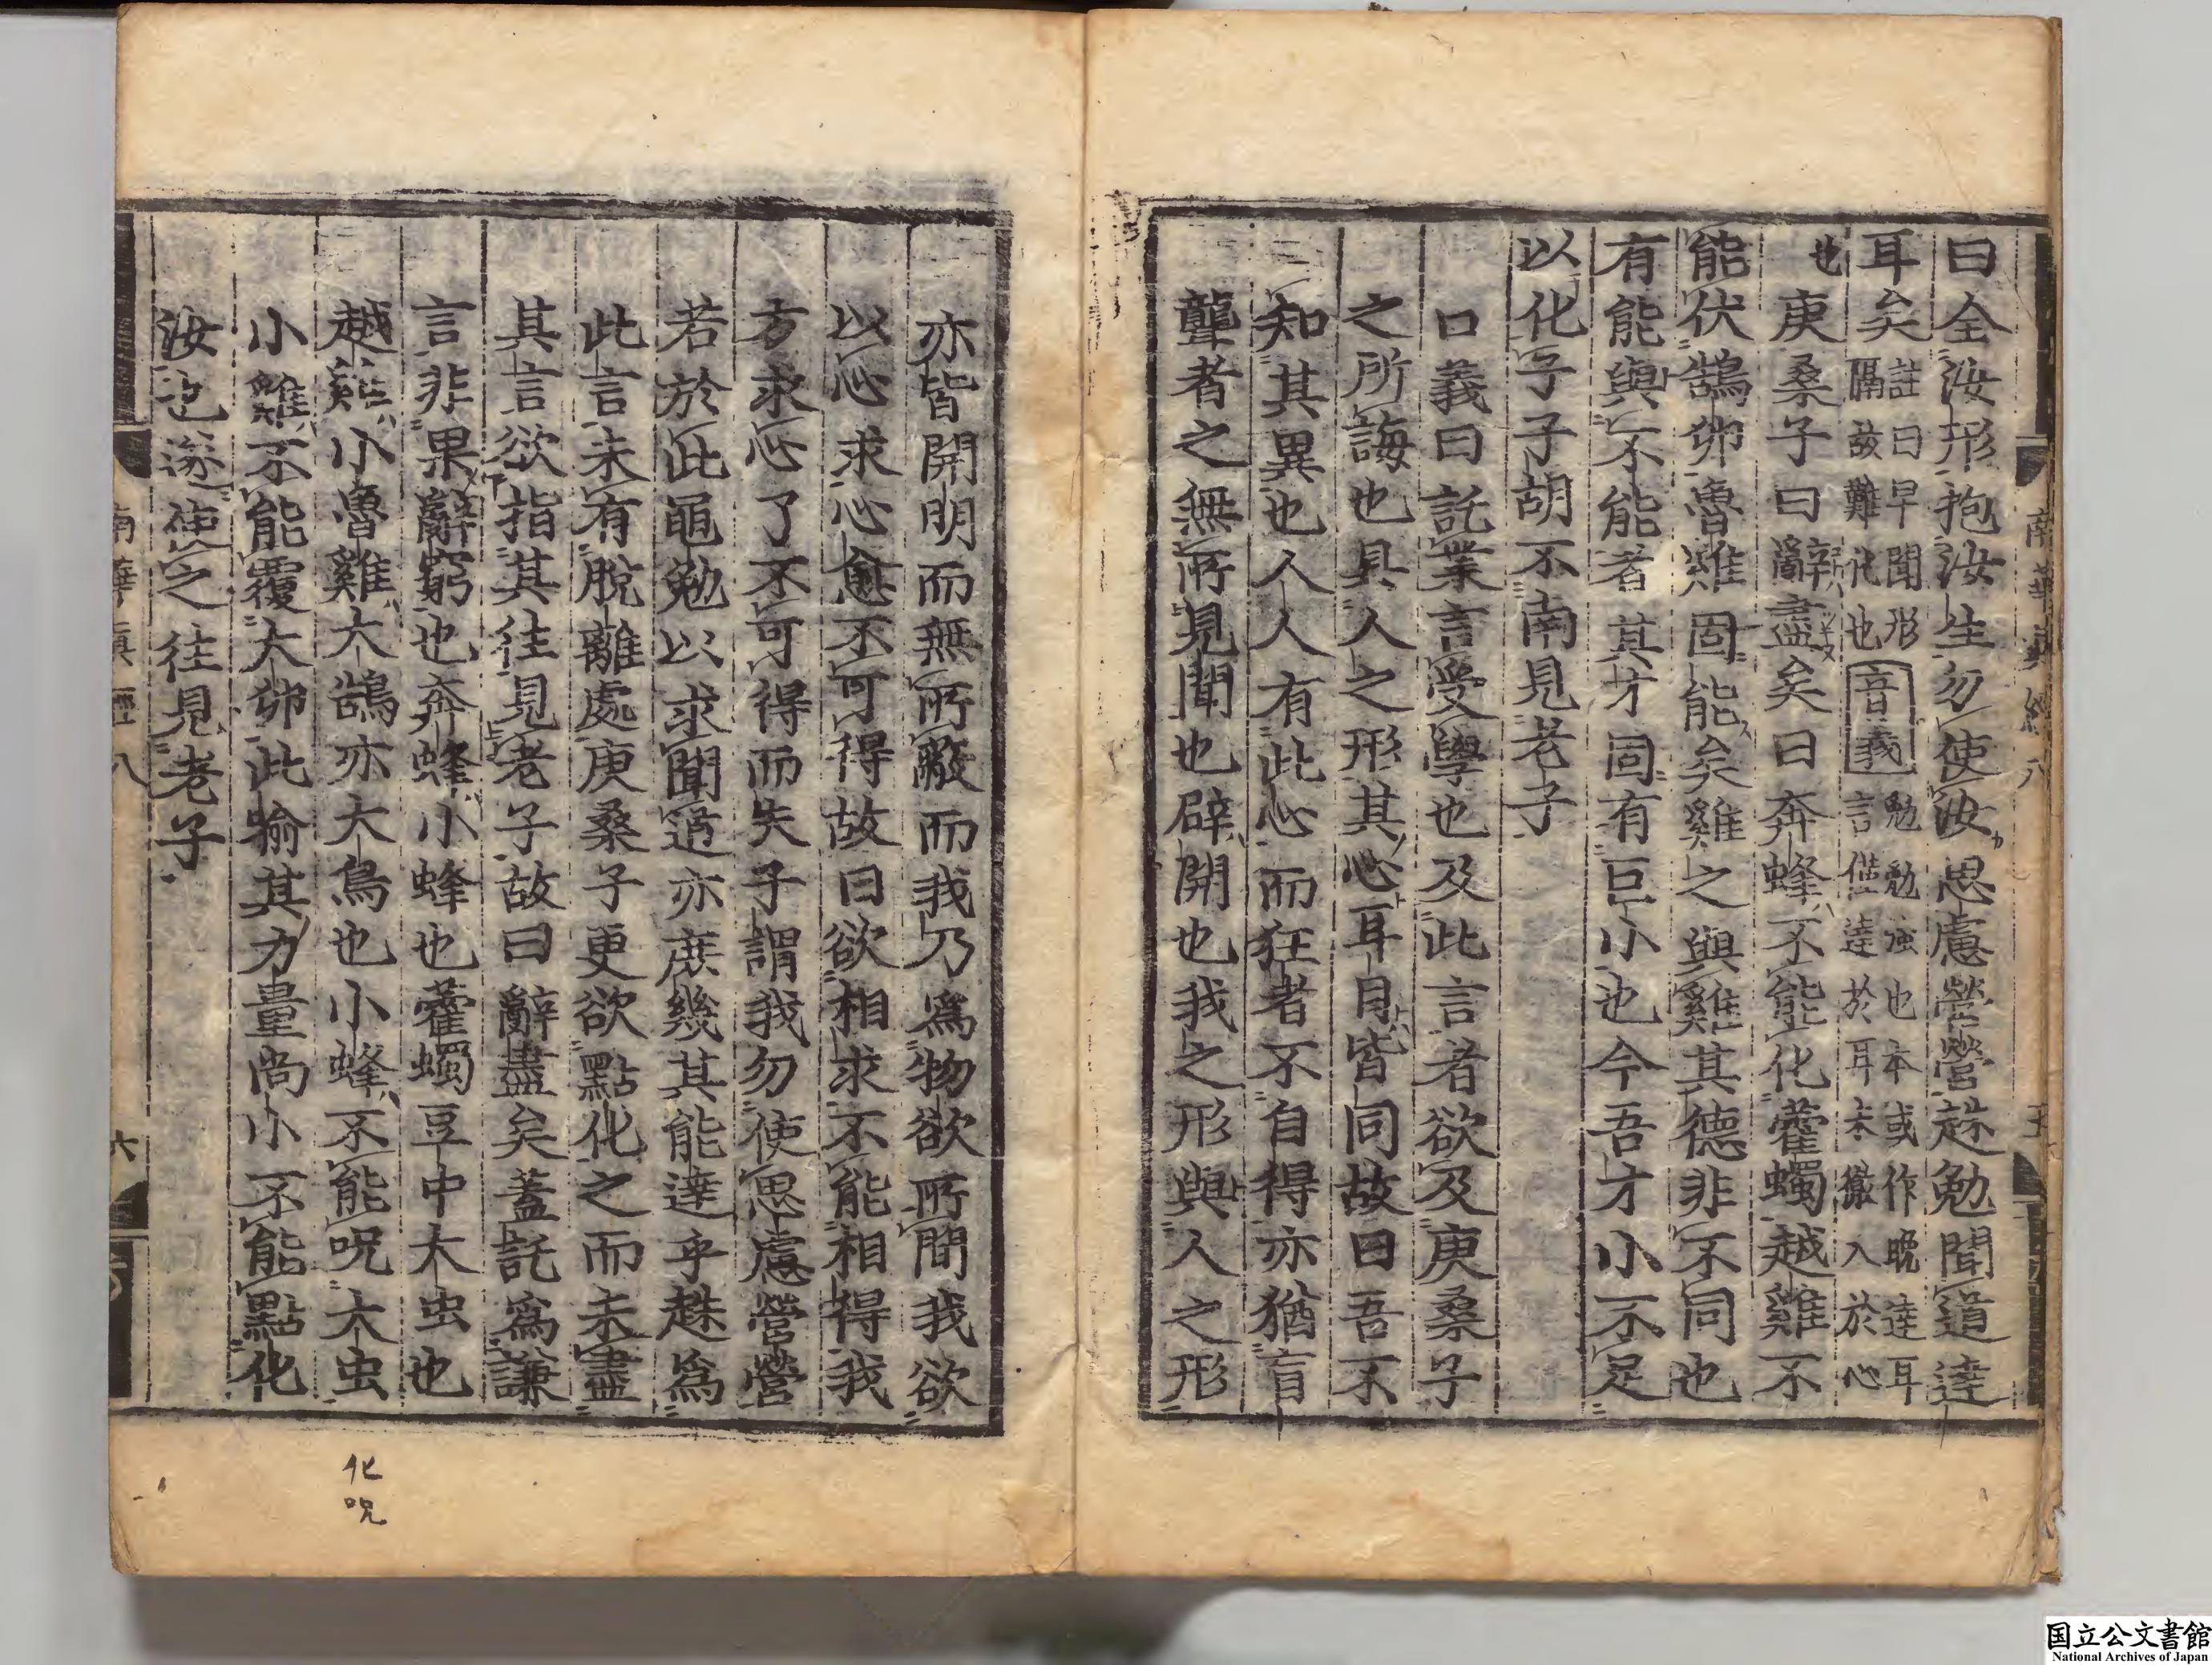 曰全汝形抱汝生勿使汝思慮營營趎勉聞道達
耳矣註曰早聞形隔故難化也音義勉勉強也本或作晚達耳言僅達於耳未徹入於心
也庚桑子曰辭盡矣曰奔蜂不能化藿蠋越雞不
能伏鵠卵魯雞固能矣雞之與雞其德非不同也
有能與不能者其才固有巨小也今吾才小不足
以化子子胡不南見老子
口義曰託業言受學也及此言者欲及庚桑子
之所誨也具人之形其心耳目皆同故曰吾不
知其異也人人有此心而狂者不自得亦猶盲
聾者之無所見聞也辟開也我之形與人之形
南華眞經八
五
亦皆開明而無所蔽而我乃爲物欲所間我欲
以心求心愈不可得故曰欲相求不能相得我
方求心了不可得而失子謂我勿使思慮營營
若於此黽勉以求聞道亦庶幾其能達乎趎爲
此言未有脫離處庚桑子更欲點化之而未盡
其言欲指其往見老子故曰辭盡矣蓋託爲謙
言非果辭窮也奔蜂小蜂也藿蠋豆中大虫也
越雞小魯雞大鵠亦大鳥也小蜂不能呪大虫
小雞不能覆大卵此喻其力量尚小不能點化
汝也遂使之往見老子
南華眞經八
六
化
呪
国立公文書館
National Archives of Japan